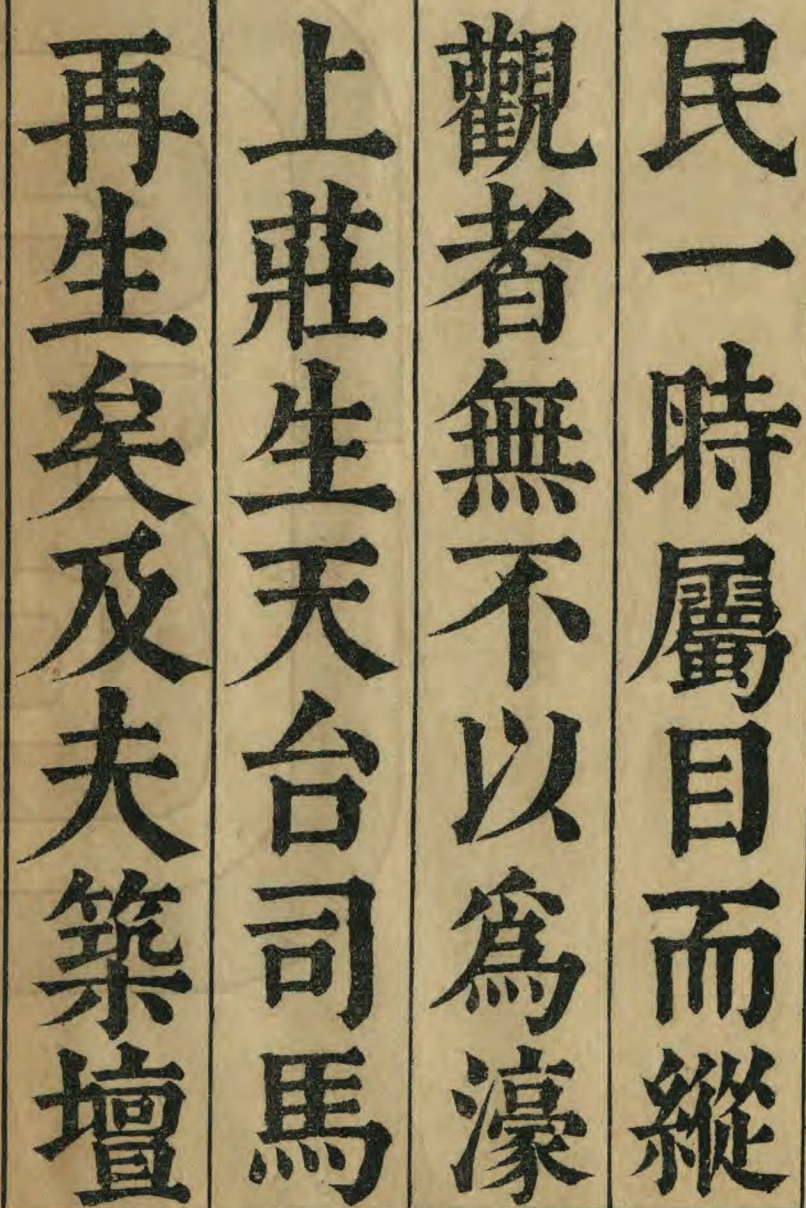 民一時屬目而縱
觀者無不以爲濠
上莊生天台司馬
再生矣及夫築壇